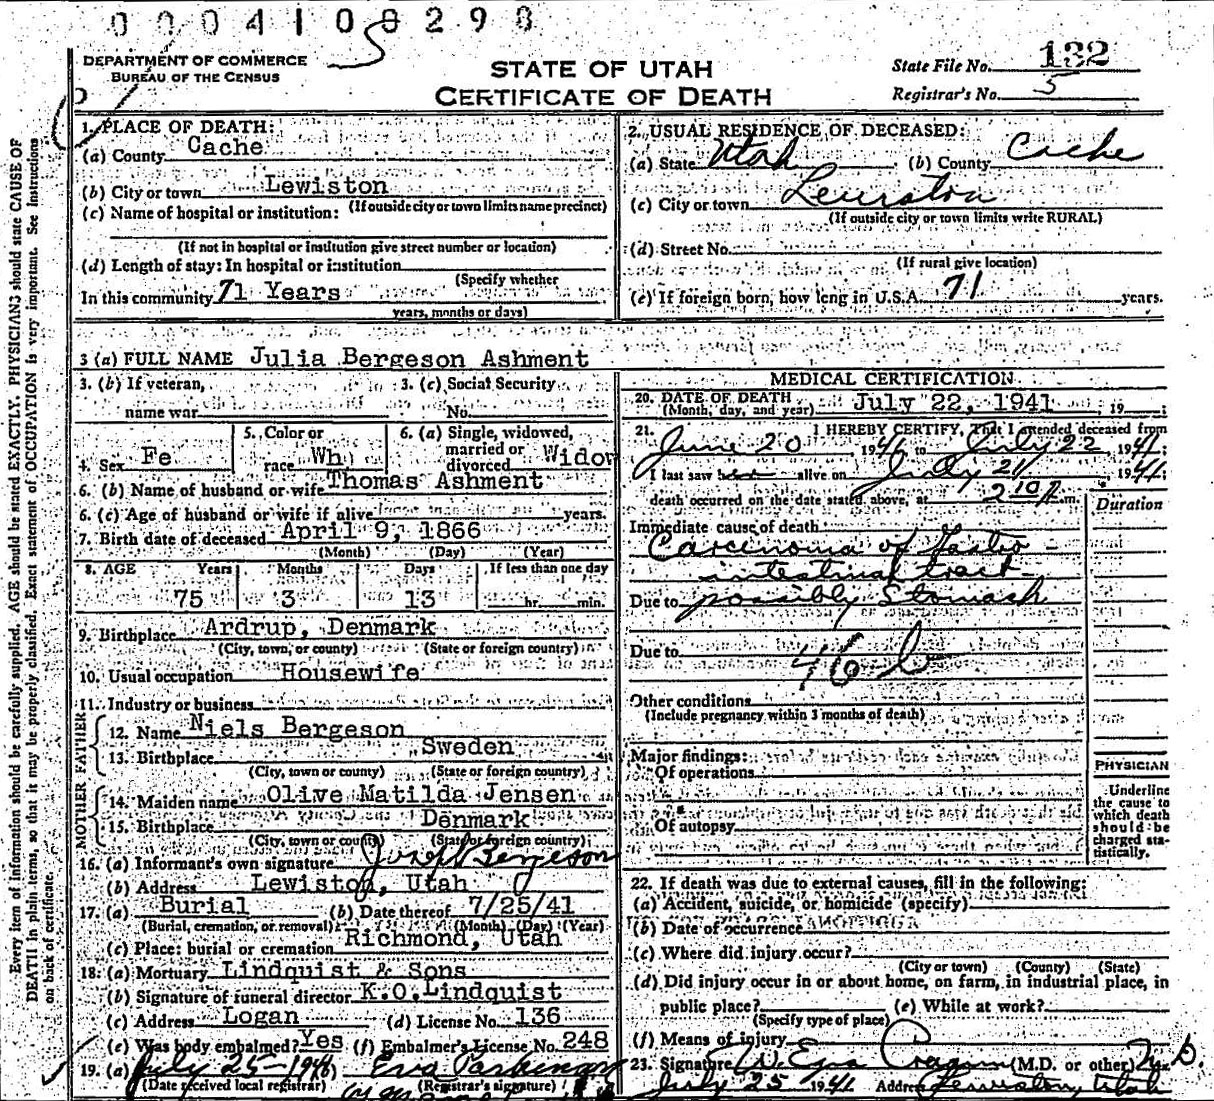 0004100298
DEPARTMENT OF COMMERCE
BUREAU OF THE CENSUS
STATE OF UTAH
CERTIFICATE OF DEATH
State File No. 132
Registrar's No. 5
Every item of information should be carefully supplied. AGE should be stated EXACTLY. PHYSICIANS should state CAUSE OF
DEATH in plain terms, so that it may be properly classified. Exact statement of OCCUPATION is very important. See Instructions
on back of certificate.
1. PLACE OF DEATH:
(a) County Cache
(b) City or town Lewiston
(If outside city or town limits name precinct)
(c) Name of hospital or institution:
(If not in hospital or institution give street number or location)
(d) Length of stay: In hospital or institution
(Specify whether
In this community 71 Years
years, months or days)
2. USUAL RESIDENCE OF DECEASED:
(a) State Utah (b) County Cache
(c) City or town Lewiston
(If outside city or town limits write RURAL)
(d) Street No.
(If rural give location)
(e) If foreign born, how long in U.S.A. 71 years.
3 (a) FULL NAME Julia Bergeson Ashment
3. (b) If veteran,
name war
3. (c) Social Security
No.
4. Sex Fe
5. Color or
race Wh
6. (a) Single, widowed,
married or
divorced Widow
6. (b) Name of husband or wife Thomas Ashment
6. (c) Age of husband or wife if alive years.
7. Birth date of deceased April 9, 1866
(Month) (Day) (Year)
8. AGE Years Months Days If less than one day
75 3 13 hr. min.
9. Birthplace Ardrup, Denmark
(City, town, or county) (State or foreign country)
10. Usual occupation Housewife
11. Industry or business
FATHER
12. Name Niels Bergeson
13. Birthplace Sweden
(City, town or county) (State or foreign country)
MOTHER
14. Maiden name Olive Matilda Jensen
15. Birthplace Denmark
(City, town or county) (State or foreign country)
16. (a) Informant's own signature Joseph Bergeson
(b) Address Lewiston, Utah
17. (a) Burial (b) Date thereof 7/25/41
(Burial, cremation, or removal) (Month) (Day) (Year)
(c) Place: burial or cremation Richmond, Utah
18. (a) Mortuary Lindquist & Sons
(b) Signature of funeral director K.O. Lindquist
(c) Address Logan (d) License No. 136
(e) Was body embalmed? Yes (f) Embalmer's License No. 248
19. (a) July 25-1941 Eva Parkinson
(Date received local registrar) (Registrar's signature)
MEDICAL CERTIFICATION
20. DATE OF DEATH
(Month, day, and year) July 22, 1941, 19
21. I HEREBY CERTIFY, That I attended deceased from
June 20 1941 to July 22 1941;
I last saw her alive on July 21, 1941;
death occurred on the date stated above, at 2 10 P.m.
Duration
Immediate cause of death
Carcinoma of Gastro-
intestinal tract
Due to possibly Stomach
Due to
46 b
Other conditions
(Include pregnancy within 3 months of death)
Major findings:
Of operations
Of autopsy
PHYSICIAN
Underline
the cause to
which death
should be
charged sta-
tistically.
22. If death was due to external causes, fill in the following:
(a) Accident, suicide, or homicide (specify)
(b) Date of occurrence
(c) Where did injury occur?
(City or town) (County) (State)
(d) Did injury occur in or about home, on farm, in industrial place, in
public place? (e) While at work?
(Specify type of place)
(f) Means of injury
23. Signature W. Ezra Cragun (M.D. or other) M.D.
July 25 1941 Address Lewiston, Utah